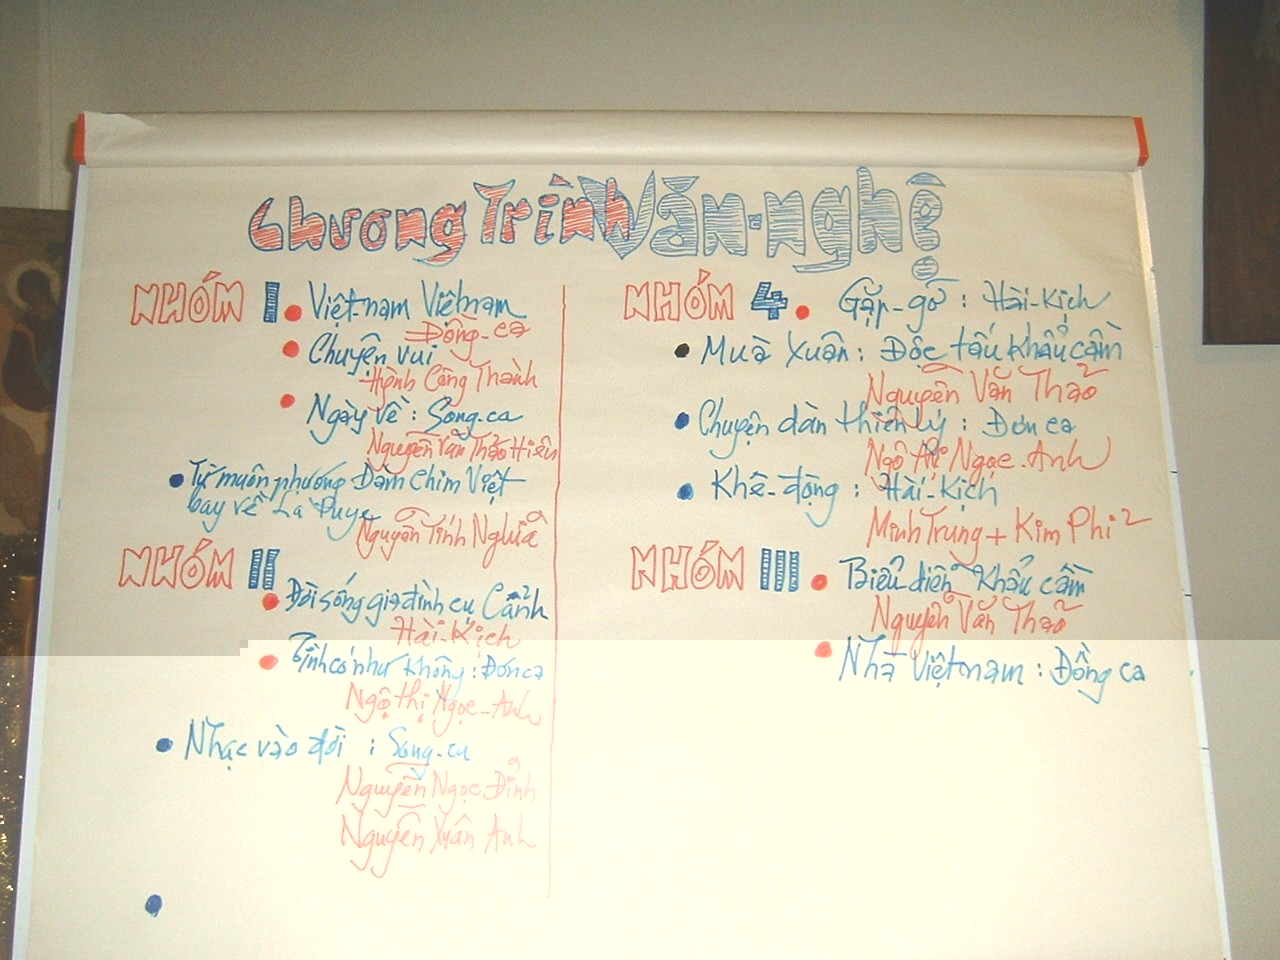 Chương Trình Văn-nghệ
NHÓM I
Việt-nam Việtnam
Đồng-ca
Chuyện vui
Hỳnh Công Thành
Ngày về : Song-ca
Nguyễn Văn Thảo Hiền
Từ muôn phương Đàm Chim Việt
bay về La Puye
Nguyễn Tính Nghĩa
NHÓM II
Đời sống gia đình cụ Cảnh
Hài-Kịch
Tình có như không : Đơn ca
Ngô thị Ngọc-Anh
Nhạc vào đời : Song-ca
Nguyễn Ngọc Đỉnh
Nguyễn Xuân Anh
NHÓM 4
Gặp-gỡ : Hài-Kịch
Muà Xuân : Độc tấu khẩu cầm
Nguyễn Văn Thảo
Chuyện dàn thiên lý : Đơn ca
Ngô thị Ngọc-Anh
Khê-động : Hài-Kịch
Minh Trung + Kim Phi 2
NHÓM III
Biểu diễn Khẩu cầm
Nguyễn Văn Thảo
Nhà Việt nam : Đồng ca